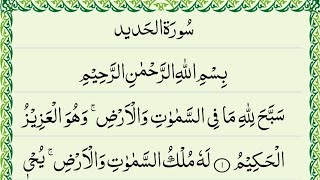 سُورَةُ الحَدِيد
بِسْمِ اللهِ الرَّحْمٰنِ الرَّحِيْمِ
سَبَّحَ لِلّٰهِ مَا فِي السَّمٰوٰتِ وَالْاَرْضِ ۚ وَهُوَ الْعَزِيْزُ
الْحَكِيْمُ ① لَهٗ مُلْكُ السَّمٰوٰتِ وَالْاَرْضِ ۚ يُحْيٖ